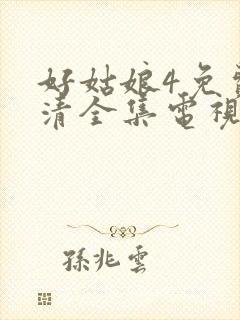 好姑娘4免
清全集電視
孫兆雲